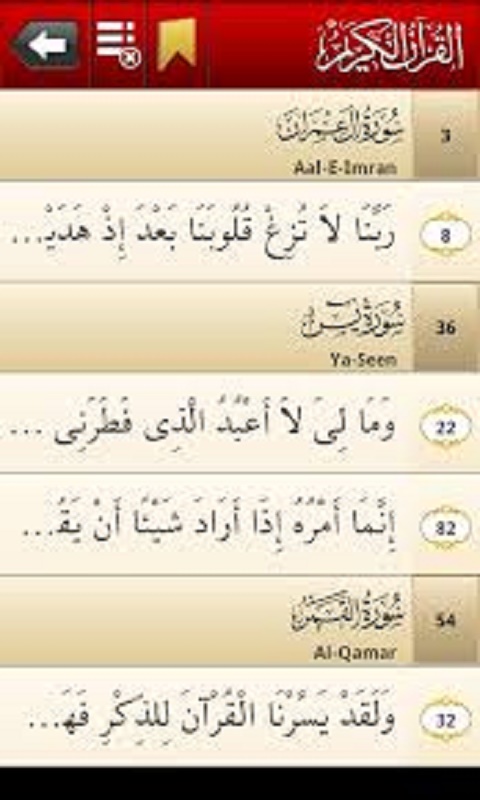 القرآن الكريم
سورة آل عمران
3
Aal-E-Imran
رَبَّنَا لاَ تُزِغْ قُلُوبَنَا بَعْدَ إِذْ هَدَيْ...
8
سورة يس
36
Ya-Seen
وَمَا لِيَ لاَ أَعْبُدُ الَّذِى فَطَرَنِى ...
22
إِنَّمَا أَمْرُهُ إِذَا أَرَادَ شَيْئًا أَنْ يَقُ...
82
سورة القمر
54
Al-Qamar
وَلَقَدْ يَسَّرْنَا الْقُرْآنَ لِلذِكْرِ فَهَ...
32